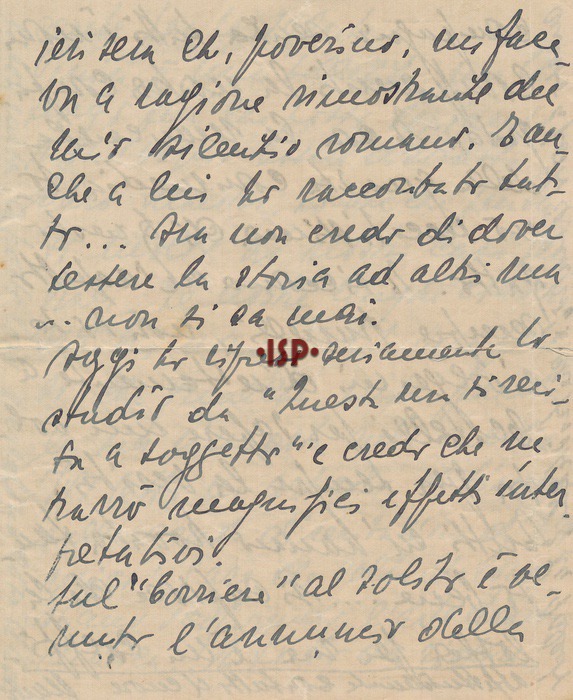 ieri sera che, poverino, mi face-
va a ragione rimostranze del
mio silenzio romano. E an-
che a lui ho raccontato tut-
to... Ora non credo di dover
tessere la storia ad altri ma
... non si sa mai.
Oggi ho ripreso seriamente lo
·ISP·
studio da "Questa sera si reci-
ta a soggetto" e credo che ne
trarrò magnifici effetti inter
pretativi.
Sul "Corriere" al solito è ve-
nuto l'annuncio della